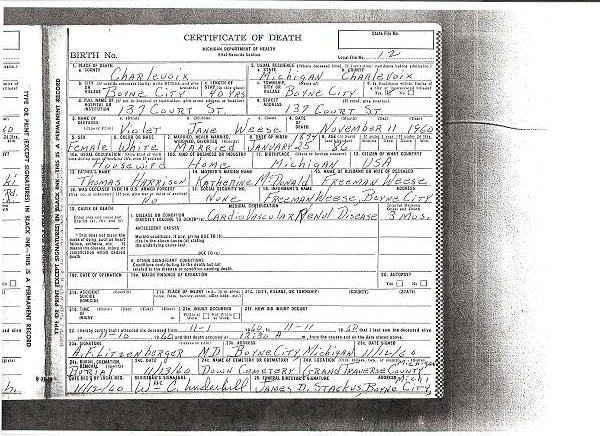 CERTIFICATE OF DEATH
State File No.
MICHIGAN DEPARTMENT OF HEALTH
Vital Records Section
BIRTH No.
Local File No. 12
1. PLACE OF DEATH
a. COUNTY Charlevoix
2. USUAL RESIDENCE (Where deceased lived. If institution: residence before admission).
a. STATE Michigan b. COUNTY Charlevoix
b. CITY OR VILLAGE Boyne City c. LENGTH OF STAY (in this place) 40 yrs
c. TOWNSHIP CITY OR VILLAGE Boyne City
Yes No
d. FULL NAME OF HOSPITAL OR INSTITUTION 137 Court St.
d. STREET ADDRESS 137 Court St
3. NAME OF DECEASED (Type or Print) Violet Jane Weese
4. DATE OF DEATH November 11 1960
5. SEX Female 6. COLOR OR RACE White 7. MARRIED, NEVER MARRIED, WIDOWED, DIVORCED Married 8. DATE OF BIRTH January 25 1874 9. AGE 86
10a. USUAL OCCUPATION Housewife
10b. KIND OF BUSINESS OR INDUSTRY Home
11. BIRTHPLACE Michigan
12. CITIZEN OF WHAT COUNTRY? USA
13. FATHER'S NAME Thomas Harrison
14. MOTHER'S MAIDEN NAME Katherine McDonald
15. NAME OF HUSBAND OR WIFE OF DECEASED Freeman Weese
16. WAS DECEASED EVER IN U.S. ARMED FORCES? No
17. SOCIAL SECURITY NO. None
18. INFORMANT'S NAME ADDRESS Freeman Weese, Boyne City
MEDICAL CERTIFICATION
19. CAUSE OF DEATH
I. DISEASE OR CONDITION DIRECTLY LEADING TO DEATH Cardio Vascular Renul Disease 3 mos.
ANTECEDENT CAUSES
DUE TO (b)
DUE TO (c)
II. OTHER SIGNIFICANT CONDITIONS
Conditions contributing to the death but not
related to the disease or condition causing death.
19a. DATE OF OPERATION 19b. MAJOR FINDINGS OF OPERATION
20. AUTOPSY
Yes No
21a. ACCIDENT SUICIDE HOMICIDE
21b. PLACE OF INJURY
21c. (CITY, VILLAGE, OR TOWNSHIP) (COUNTY) (STATE)
21d. TIME OF INJURY
21e. INJURY OCCURRED
21f. HOW DID INJURY OCCUR?
22. I hereby certify that I attended the deceased from 11-1 1960, to 11-11 1960 that I last saw the deceased alive
on 11-10 1960 and that death occurred at 12:30 A m., from the causes and on the date stated above.
23a. SIGNATURE A.F. Litzenberger M.D. 23b. ADDRESS Boyne City, Michigan 23c. DATE SIGNED 11/12/60
24a. BURIAL, CREMATION, REMOVAL Burial 24b. DATE 11/13/60 24c. NAME OF CEMETERY OR CREMATORY Cemetery 24d. LOCATION Grand Traverse County Michigan
DATE REC'D BY LOCAL REG. 11/12/60
REGISTRAR'S SIGNATURE Wm C. Underhill
25. FUNERAL DIRECTOR'S SIGNATURE ADDRESS James D. Stackus, Boyne City, Mich
TYPE OR PRINT (EXCEPT SIGNATURES) IN BLACK INK—THIS IS A PERMANENT RECORD